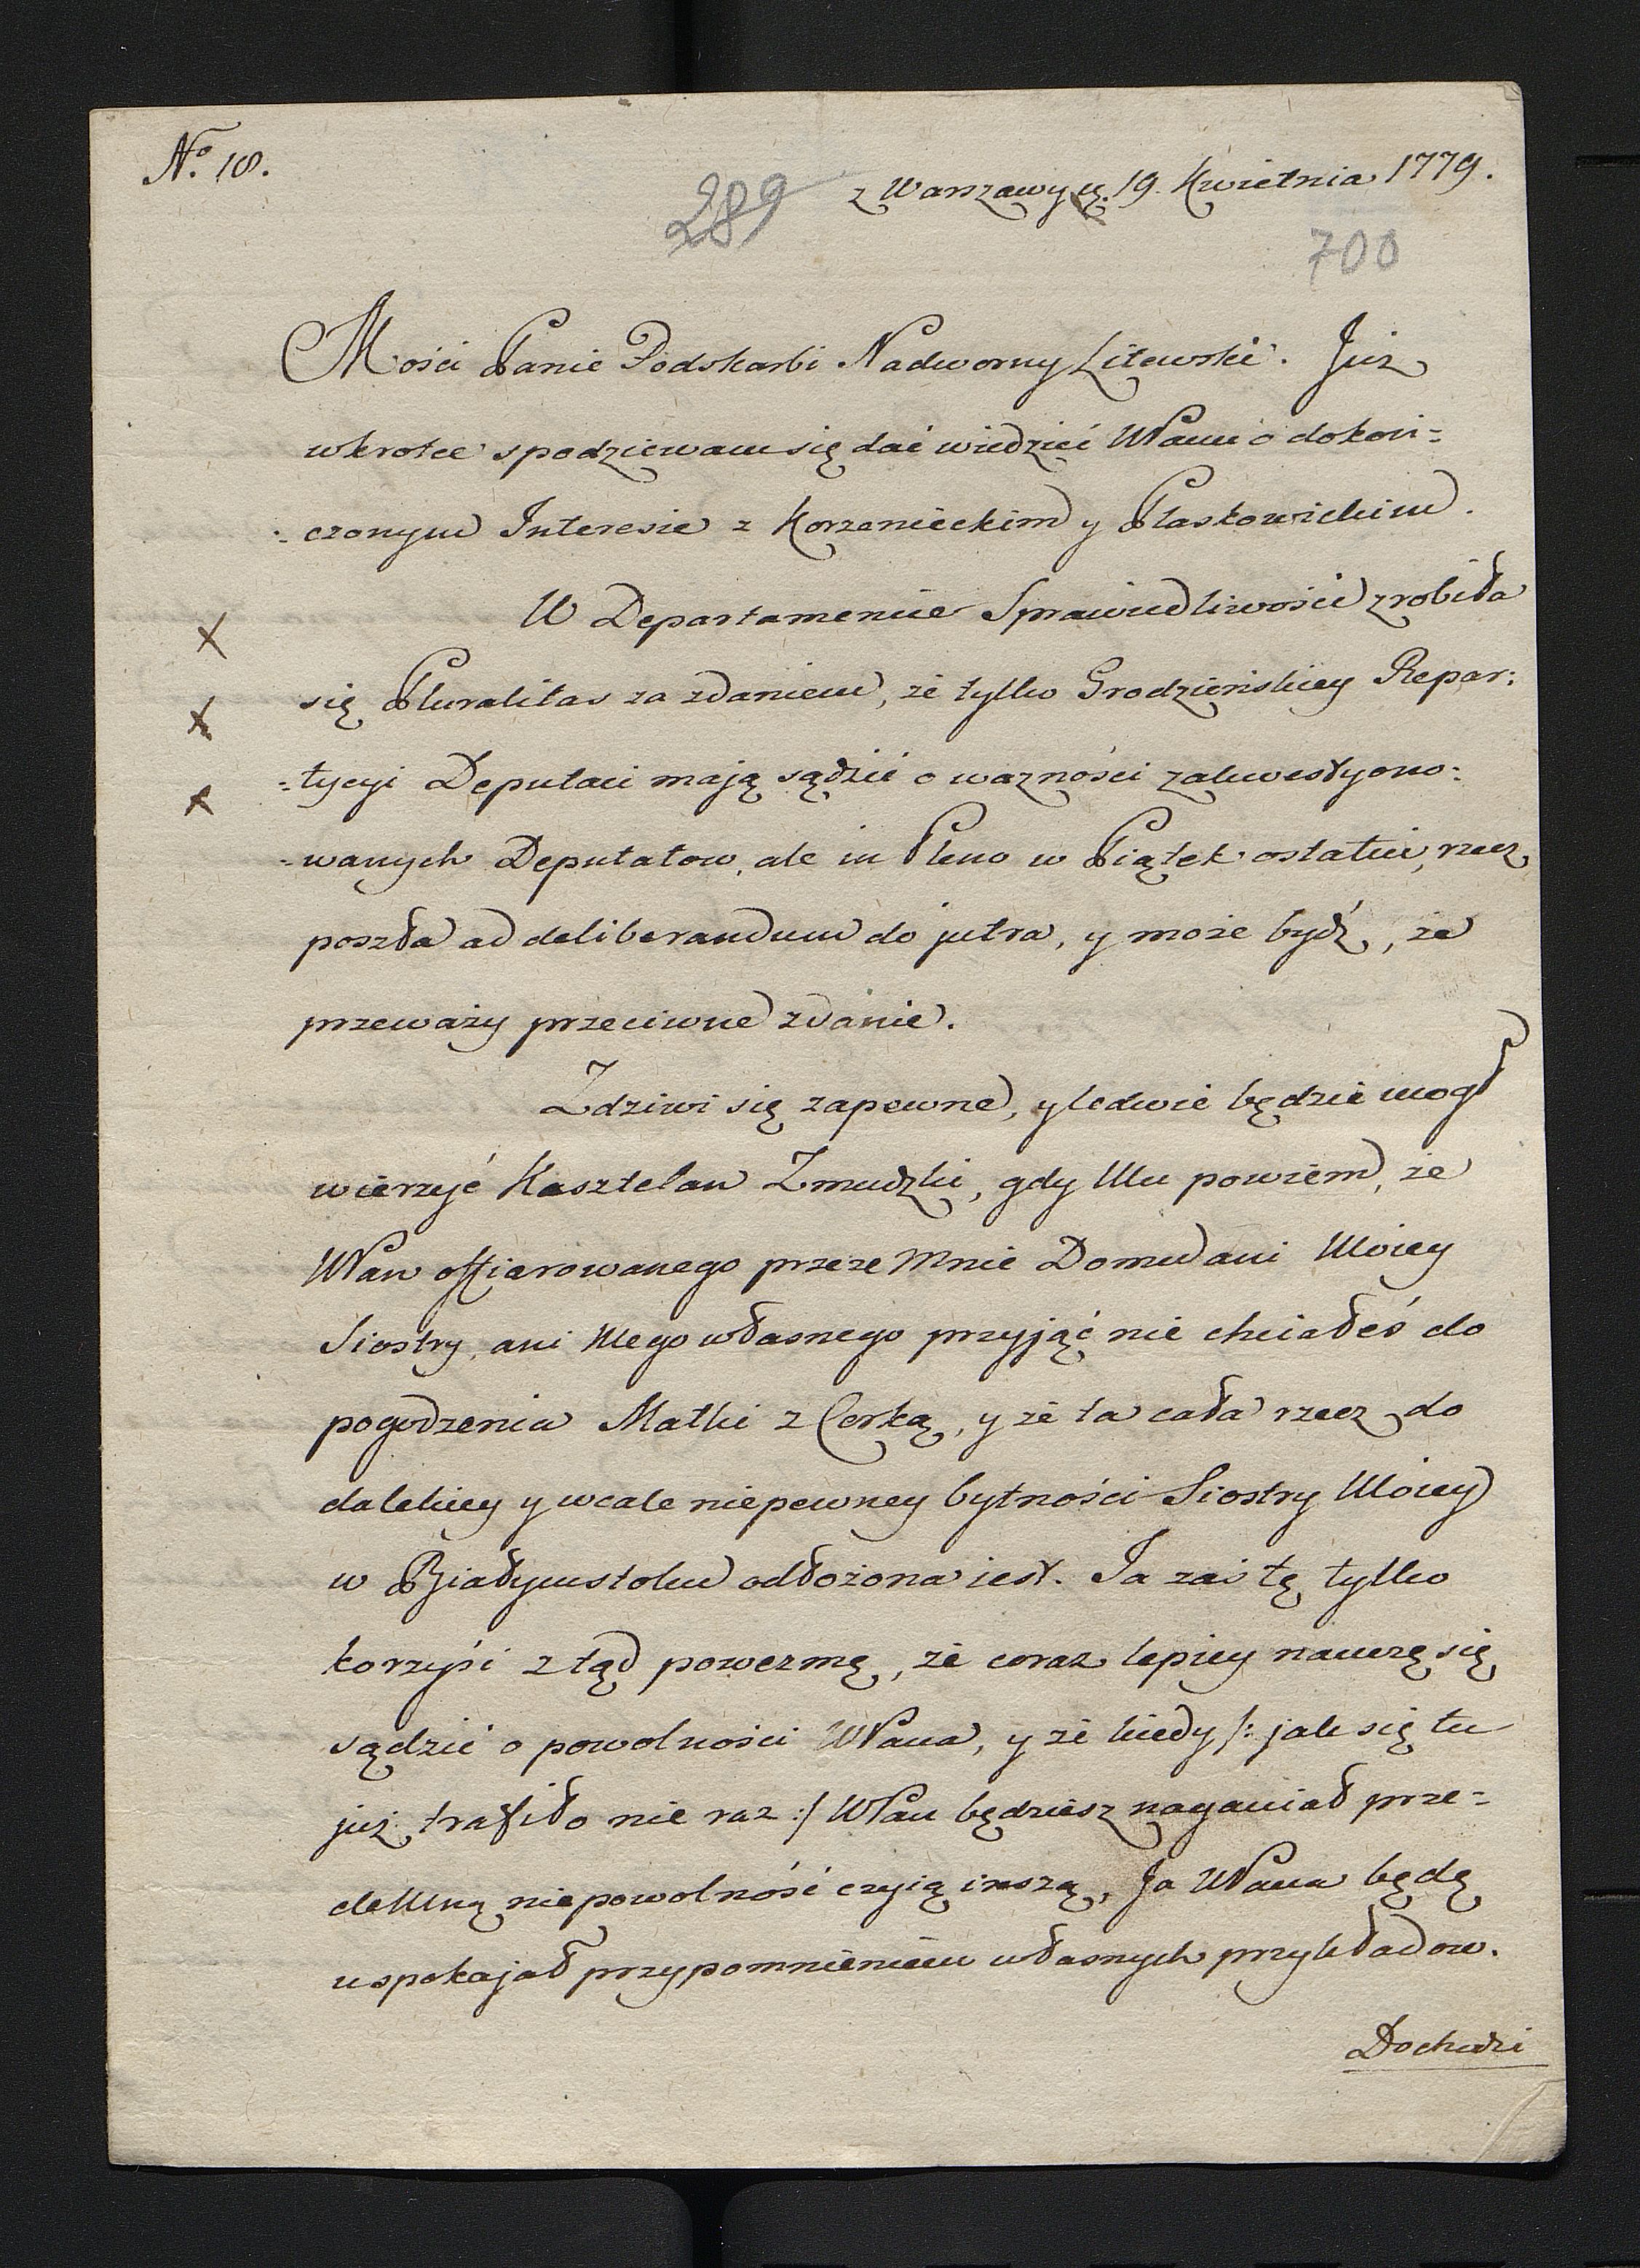 No. 18.
z Warszawy d. 19. Kwietnia 1779.
289
700
Mości Panie Podskarbi Nadworny Litewski. Już
wkrotce spodziewam się dać wiedzieć WPanu o dokoń=
=czonym Interesie z Korzenieckim y Płaskowickim.
W Departamencie Sprawiedliwości zrobiła
się Pluralitas za zdaniem, że tylko Grodzieńskiey Repar=
=tycyi Deputaci mają sądzić o ważności zakwestyono=
=wanych Deputatow, ale in Pleno w Piątek ostatni, rzecz
poszła ad deliberandum do jutra, y może bydź, że
przeważy przeciwne zdanie.
Zdziwi się zapewne, y ledwie będzie mogł
wierzyć Kasztelan Zmudzki, gdy Mu powiem, że
WPan offiarowanego przeze Mnie Domu ani Moiey
Siostry, ani Mego własnego przyjąć nie chciałeś do
pogodzenia Matki z Corką, y że ta cała rzecz do
dalekiey y wcale niepewney bytności Siostry Moiey
w Białymstoku odłożona iest. Ja zaś tę tylko
korzyść ztąd powezmę, że coraz lepiey nauczę się
sądzić o powolności WPana, y że kiedy /: jak się tu
już trafiło nie raz :/ WPan będziesz naganiał prze=
deMną niepowolność czyią inszą, Ja WPana będę
uspokajał przypomnieniem własnych przykładow.
Dochodzi